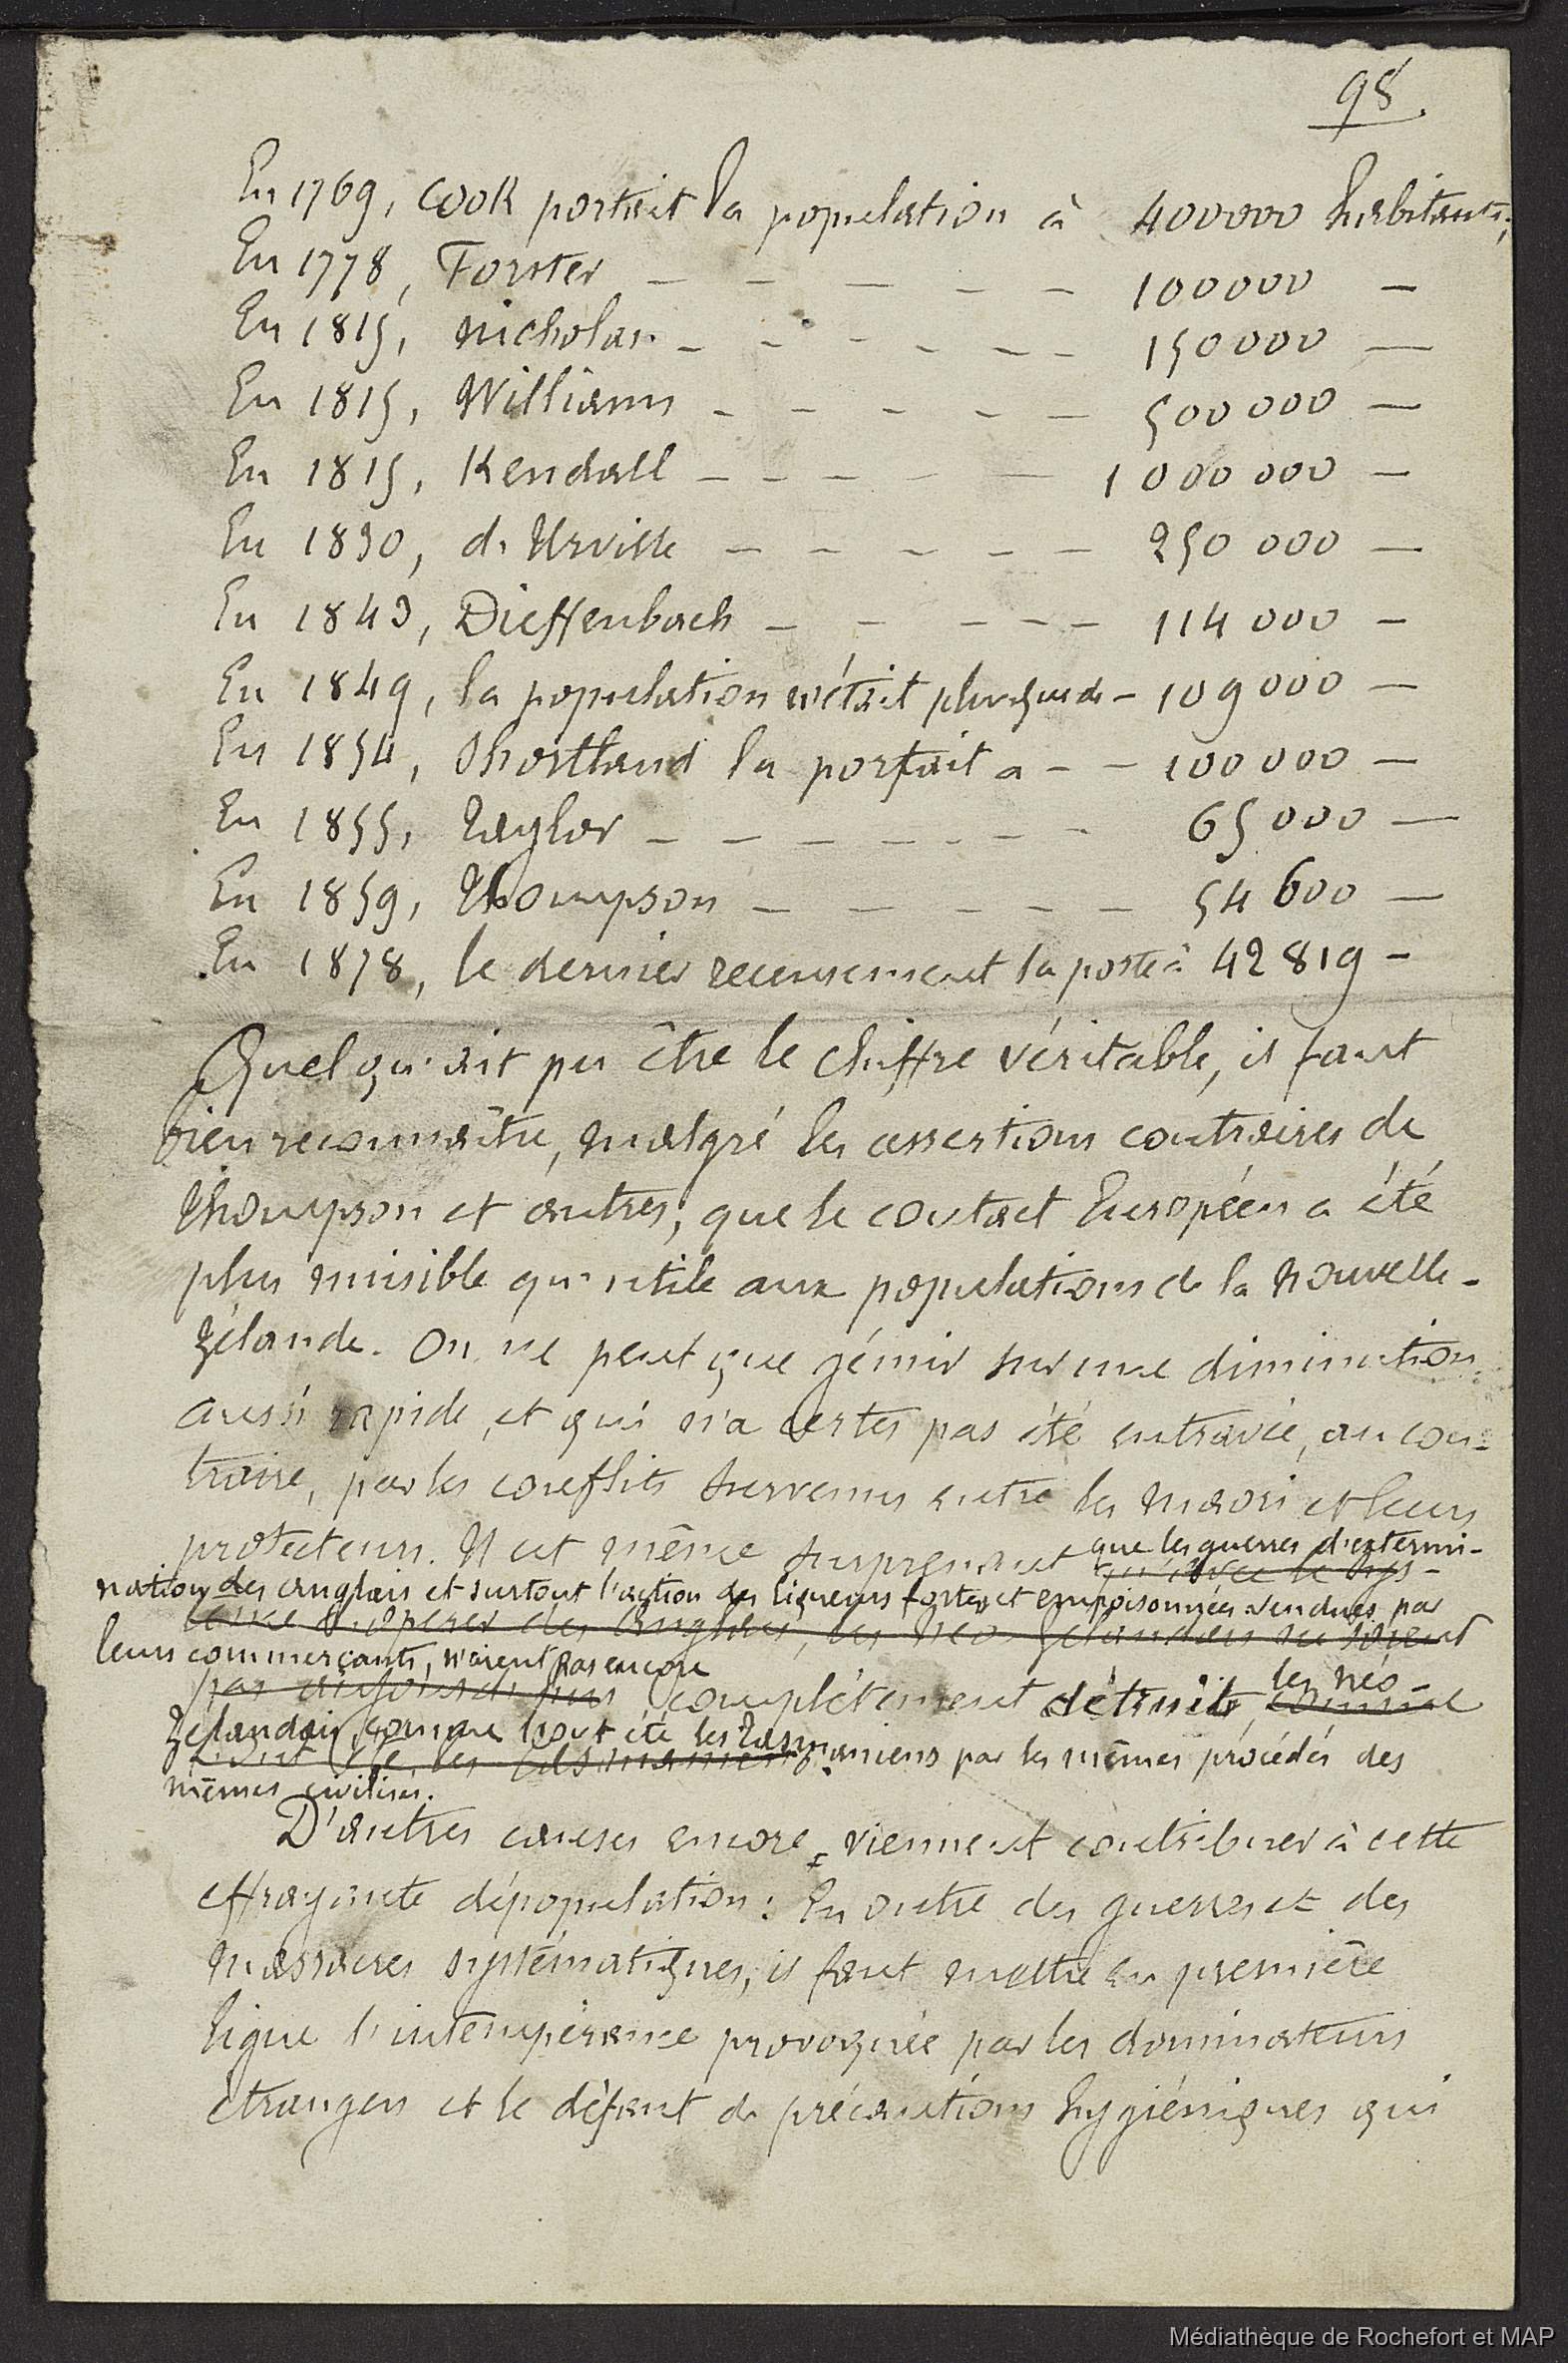 98.
En 1769, Cook portait la population à 400000 habitants;
En 1778, Forster — — — — — 100000 —
En 1815, Nicholas — — — — — — 150000 —
En 1815, Williams — — — — — 500000 —
En 1815, Kendall — — — — — 1000000 —
En 1830, d'Urville — — — — — 250 000 —
En 1843, Dieffenbach — — — — — 114 000 —
En 1849, la population n'était plus que de — 109 000 —
En 1854, Shortland la portait a — — 100 000 —
En 1855, Taylor — — — — — — — 65 000 —
En 1859, Thompson — — — — — 54 600 —
En 1878, le dernier recensement la porte à 42 819 —
Quel qu'ait pu être le chiffre véritable, il faut
bien reconnaître, malgré les assertions contraires de
Thompson et autres, que le contact Européen a été
plus nuisible qu'utile aux populations de la Nouvelle-
Zélande. On ne peut que gémir sur une diminution
aussi rapide, et qui n'a certes pas été entravée, au con-
traire, par les conflits survenus entre les Maori et leurs
protecteurs. Il est même surprenant que les guerres d'extermi-
qu'avec le sys-
nation des anglais et surtout l'action des liqueurs fortes et empoisonnées vendues par
des Anglais, les Néo-Zélandais ne soient
leurs commerçants, n'aient pas encore
pas aujourd'hui complètement détruit les Néo-
comme
Zélandais, comme l'ont été les Tasmaniens par les mêmes procédés des
l'ont été les Tasmaniens.
mêmes civilisés.
D'autres causes encore viennent contribuer à cette
effrayante dépopulation : En outre des guerres et des
massacres systématiques, il faut mettre en première
ligne l'intempérance provoquée par les dominateurs
étrangers et le défaut de précautions hygiéniques qui
Médiathèque de Rochefort et MAP